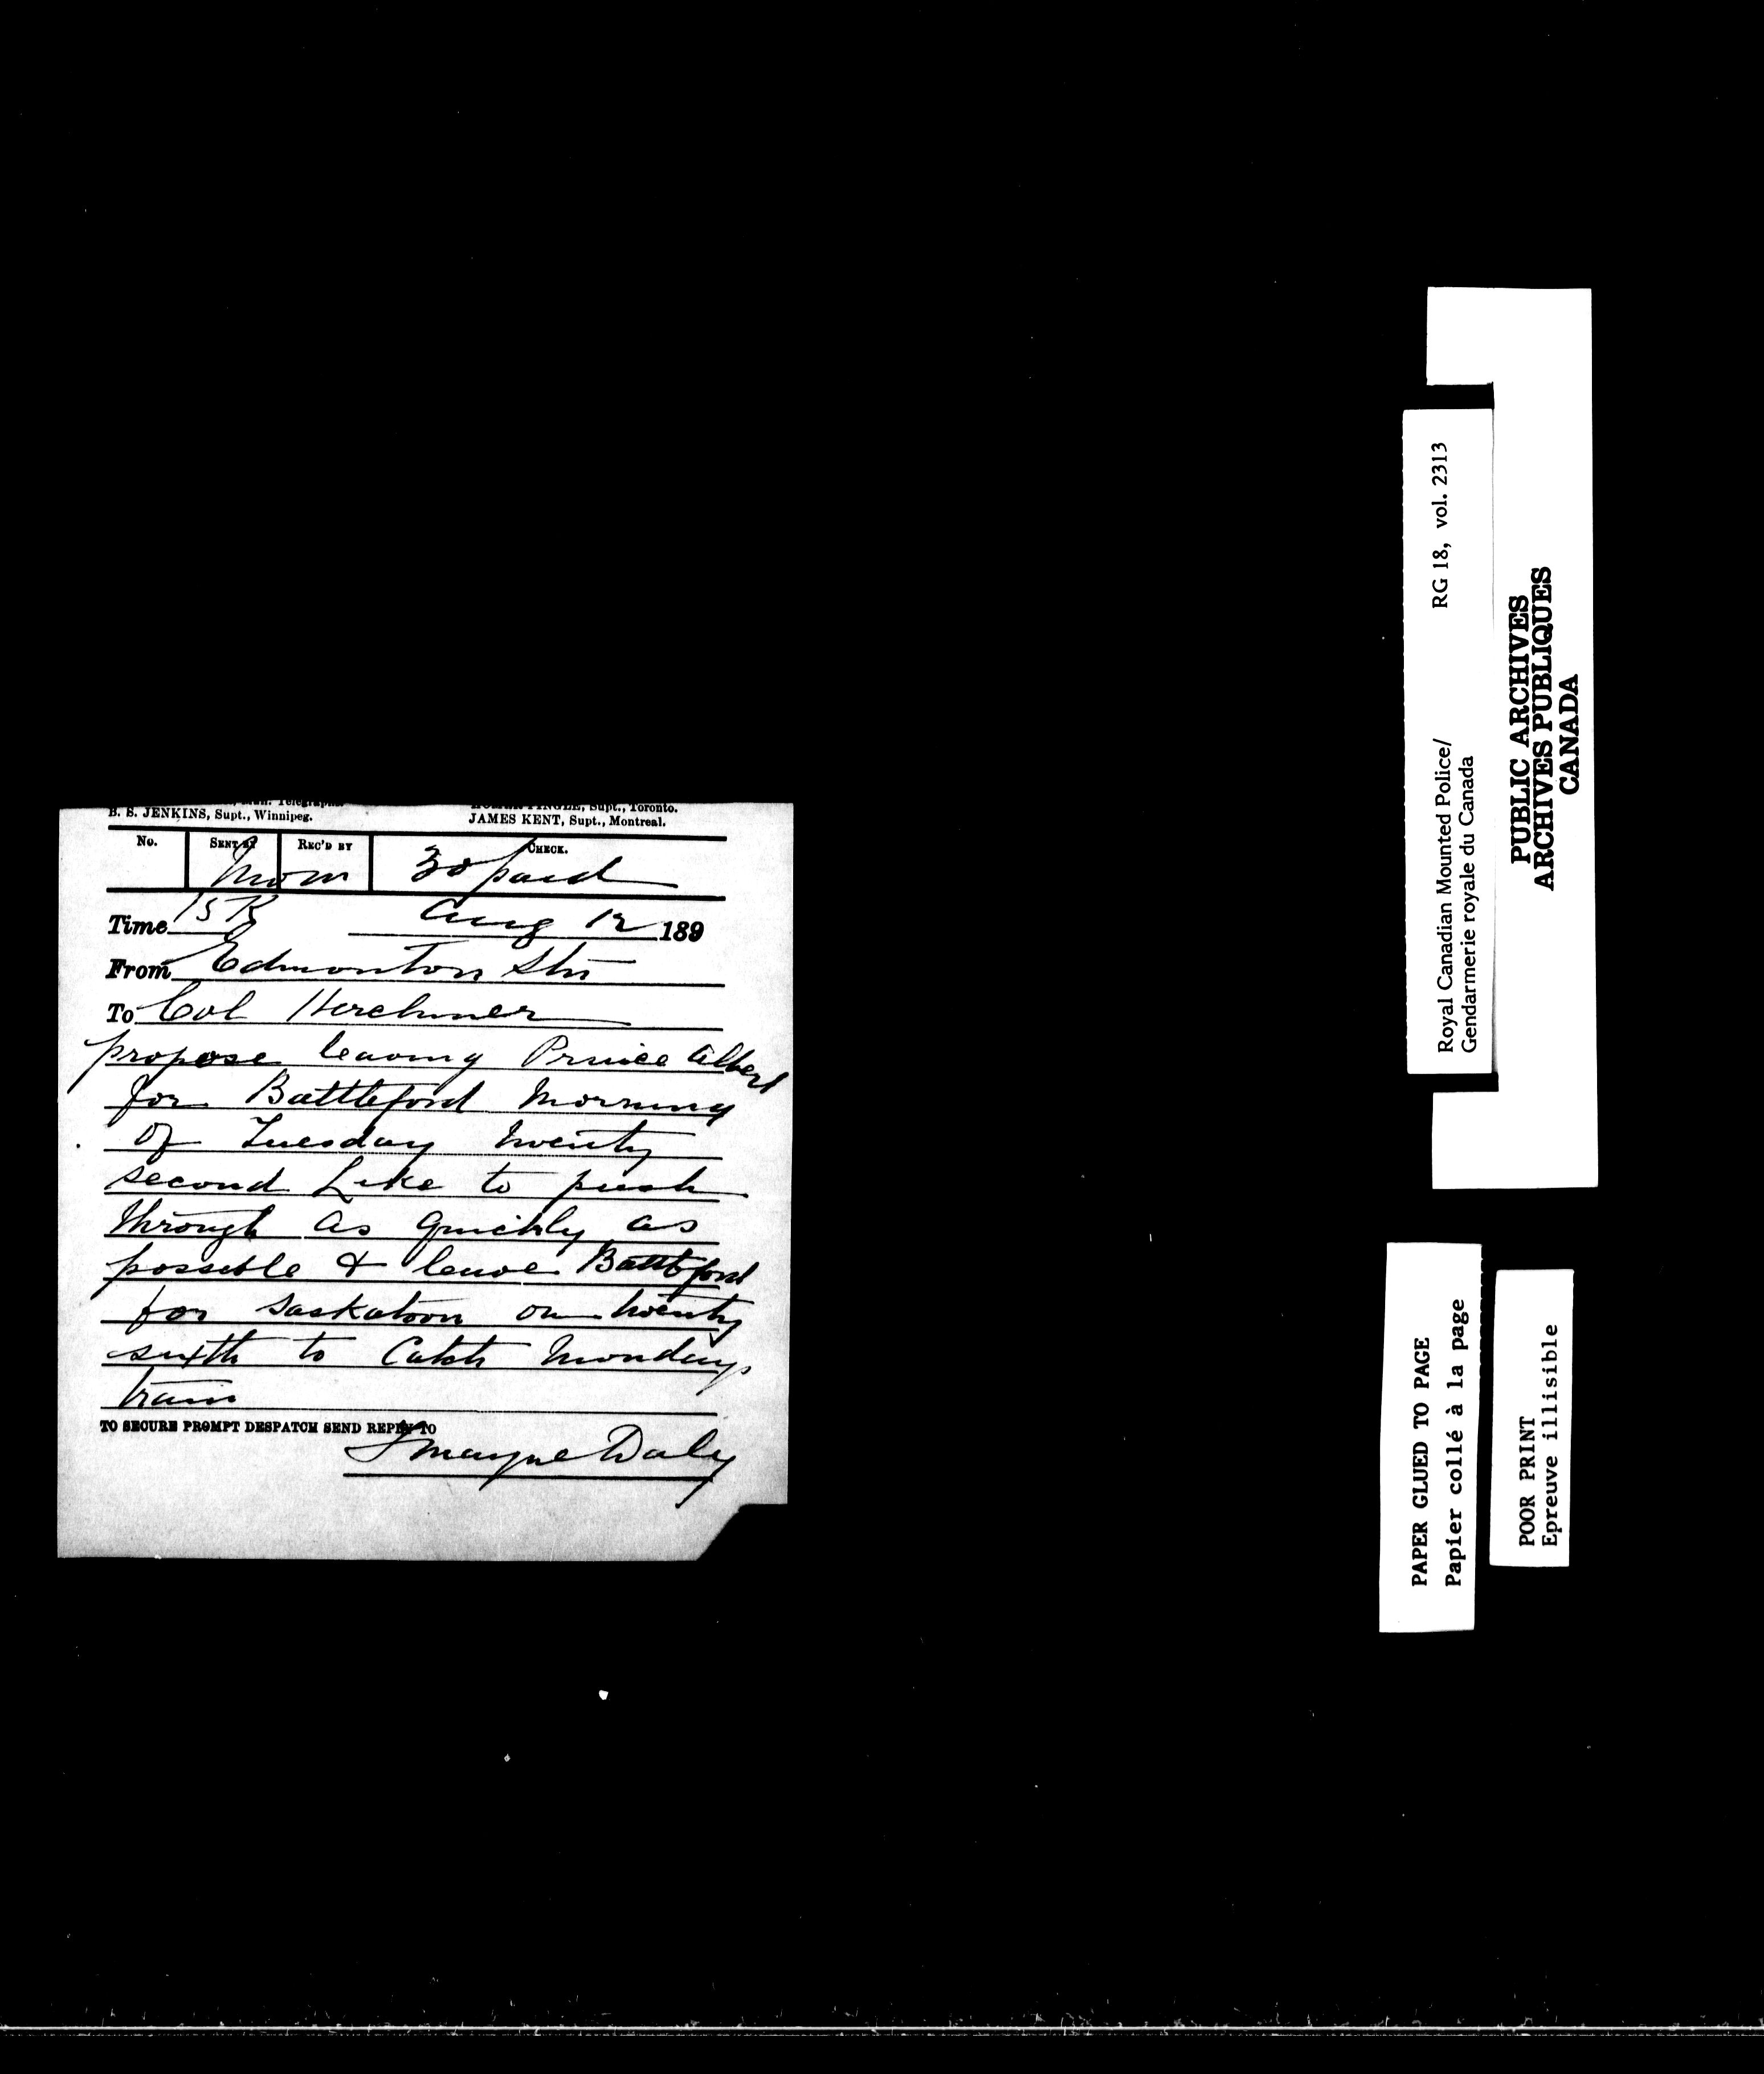 Telegraphs
HOMER PINGLE, Supt., Toronto.
B. S. JENKINS, Supt., Winnipeg.
JAMES KENT, Supt., Montreal.
No.
SENT BY
REC'D BY
CHECK.
30 paid
Time
Aug 12 189
From Edmonton Stn
To Col Herchmer
propose leaving Prince Albert
for Battleford Morning
of Tuesday twenty
second Like to push
through as quickly as
possible & leave Battleford
for Saskatoon on twenty
sixth to Catch Mondays
train
TO SECURE PROMPT DESPATCH SEND REPLY TO
T Mayne Daly
Royal Canadian Mounted Police/ RG 18, vol. 2313
Gendarmerie royale du Canada
PUBLIC ARCHIVES
ARCHIVES PUBLIQUES
CANADA
PAPER GLUED TO PAGE
Papier collé à la page
POOR PRINT
Epreuve illisible